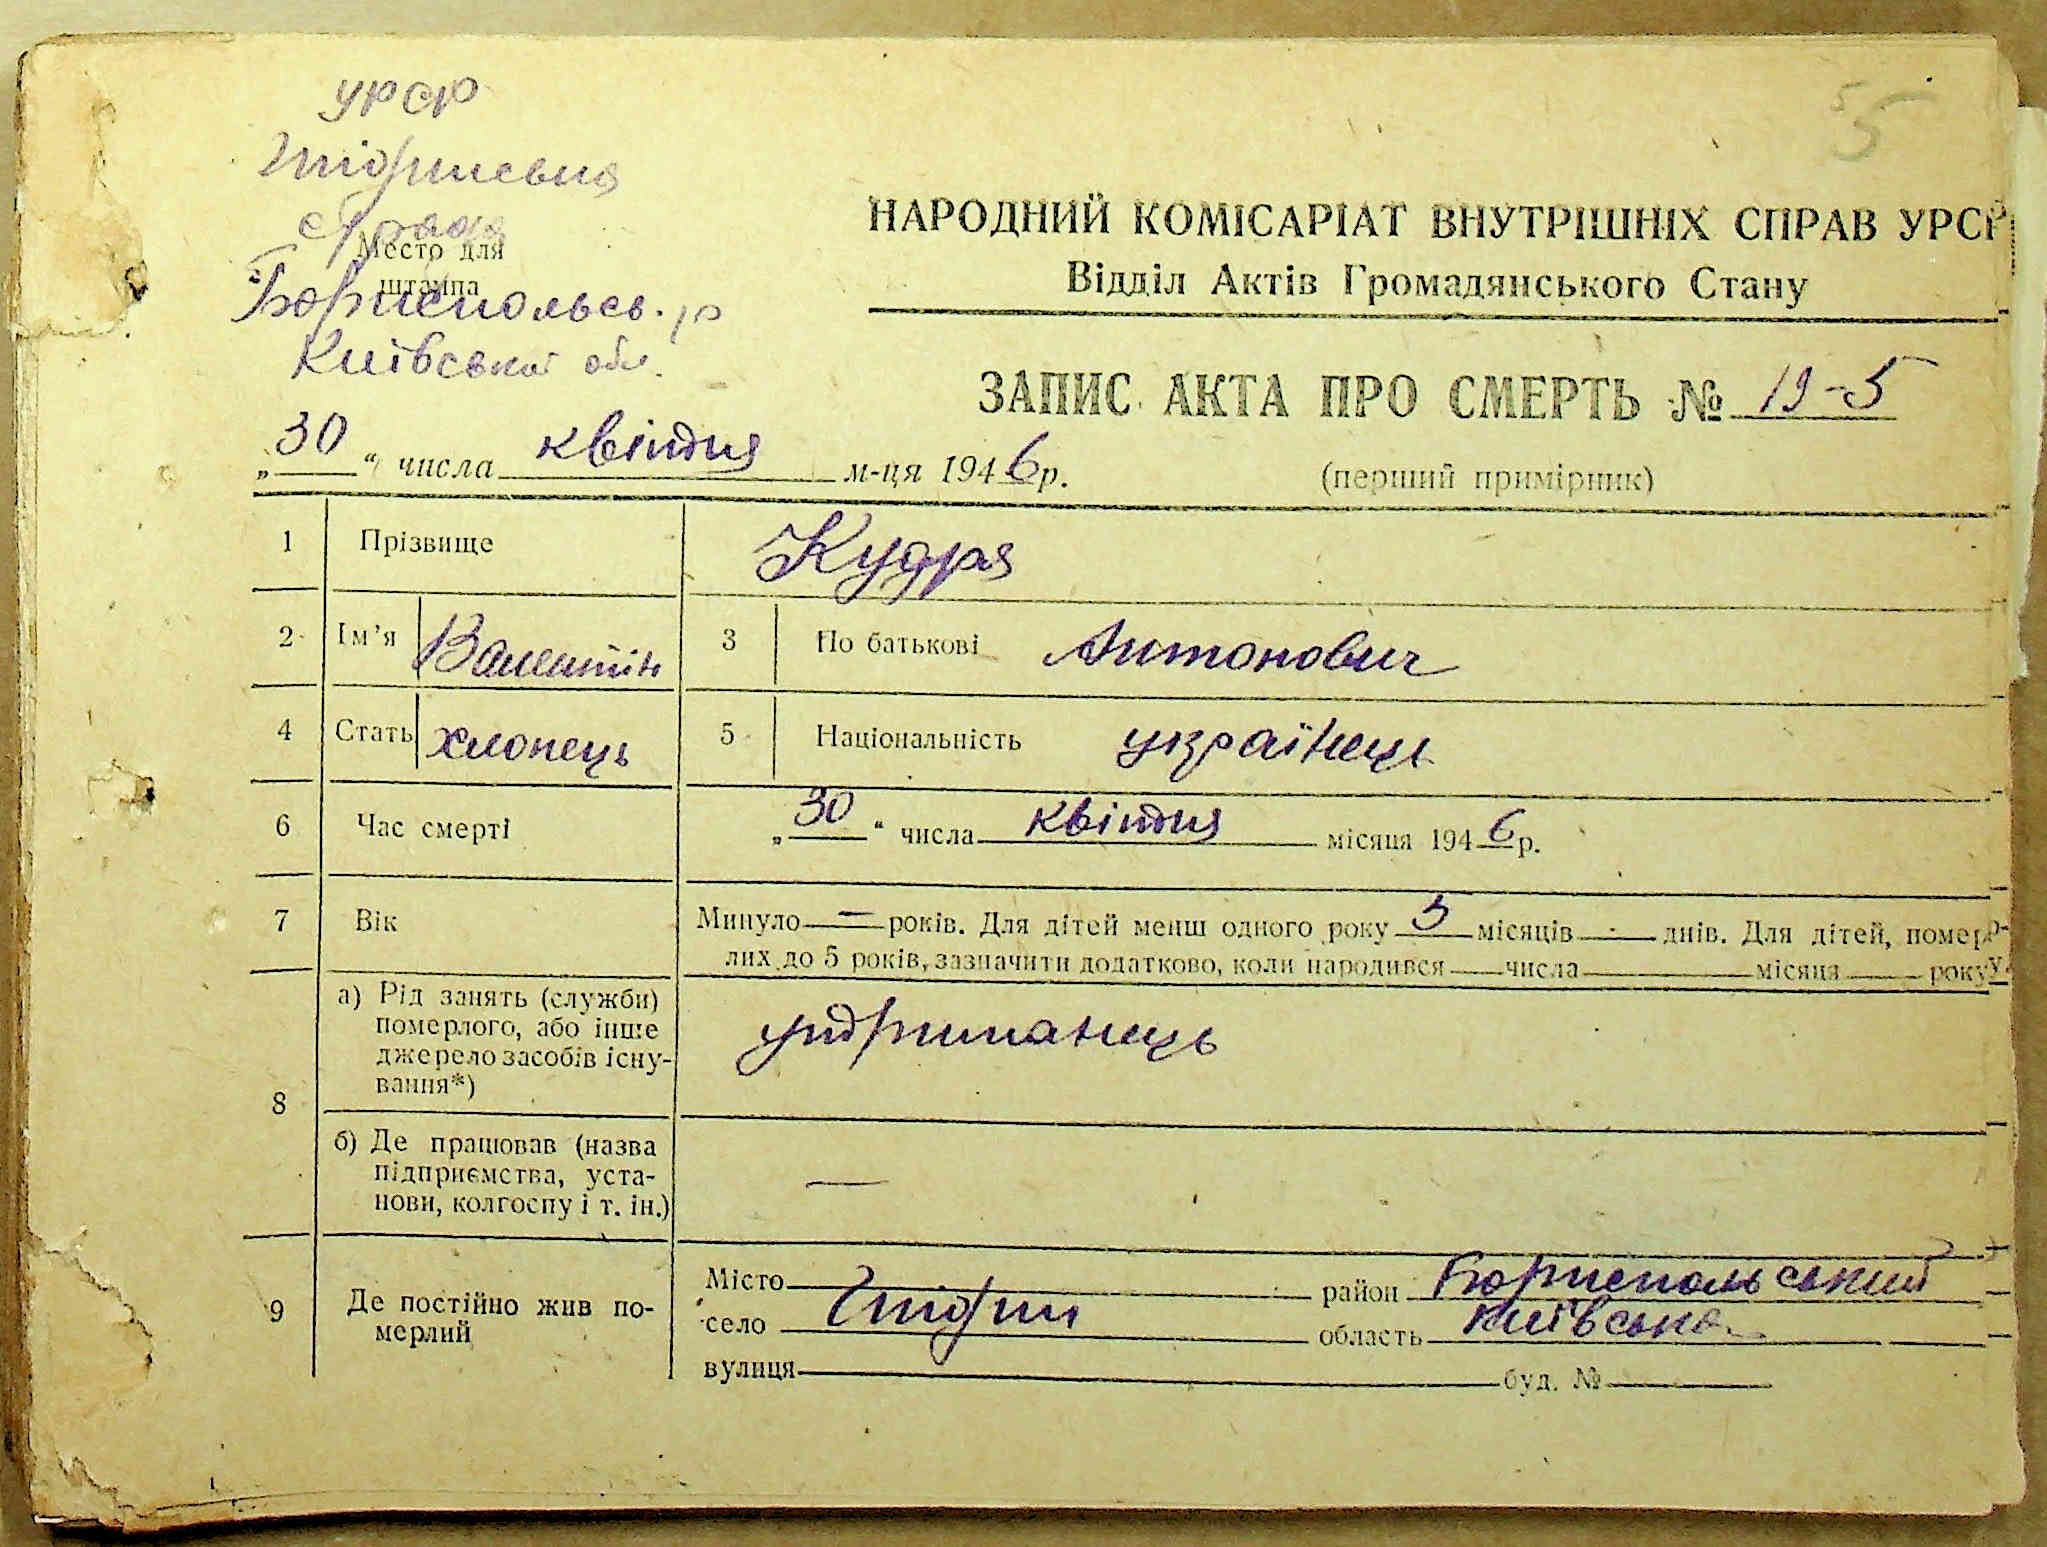 55
УРСР
Гнідинська
с/рада
Место для
штампа
Бориспольсь. р
Київської обл.
НАРОДНИЙ КОМІСАРІАТ ВНУТРІШНІХ СПРАВ УРСР
Відділ Актів Громадянського Стану
ЗАПИС АКТА ПРО СМЕРТЬ № 19-5
„30“ числа квітня м-ця 1946 р.
(перший примірник)
1 Прізвище Кудря
2 Ім’я Валентін 3 По батькові Антонович
4 Стать хлопець 5 Національність українець
6 Час смерті „30“ числа квітня місяця 1946 р.
7 Вік Минуло — років. Для дітей менш одного року 5 місяців - днів. Для дітей, помер-
лих до 5 років, зазначити додатково, коли народився числа місяця року
8 а) Рід занять (служби)
померлого, або інше
джерело засобів існу-
вання*)
утриманець
б) Де працював (назва
підприємства, уста-
нови, колгоспу і т. ін.)
—
9 Де постійно жив по-
мерлий
Місто район Бориспольський
село Гнідин область Київська
вулиця буд. №